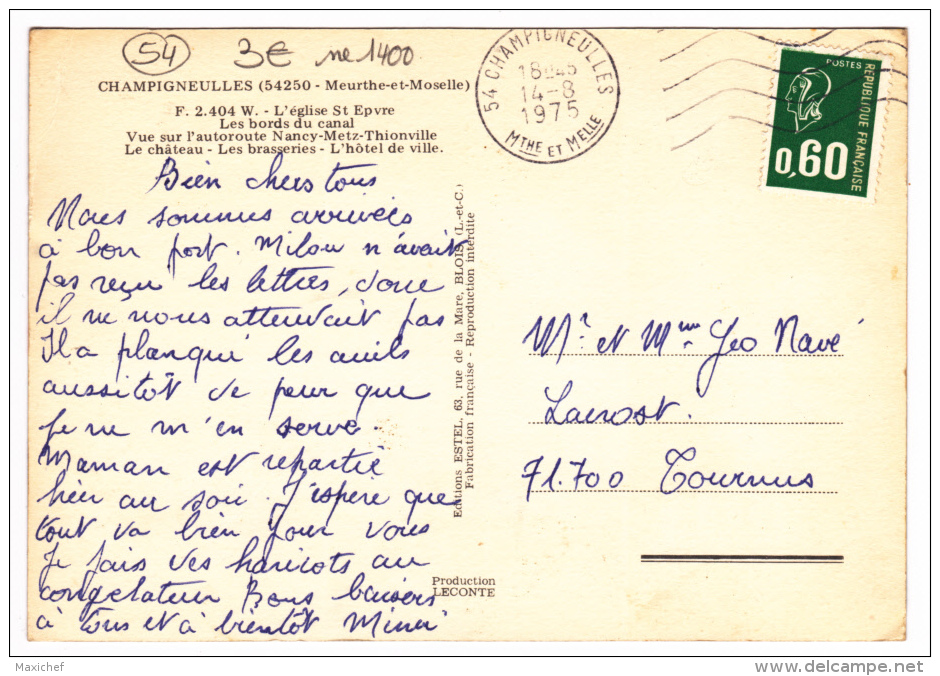 54
3€
ne 1400
CHAMPIGNEULLES (54250 - Meurthe-et-Moselle)
F. 2.404 W. - L'église St Epvre
Les bords du canal
Vue sur l'autoroute Nancy-Metz-Thionville
Le château - Les brasseries - L'hôtel de ville.
Bien chers tous
Nous sommes arrivées
à bon port. Milou n'avait
pas reçu les lettres, donc
il ne nous attendait pas
Il a planqué les outils
aussitôt de peur que
je ne m'en serve.
Maman est repartie
hier au soir. J'espère que
tout va bien pour vous
Je fais des haricots au
congelateur Bons baisers
à tous et à bientôt
Editions ESTEL, 63, rue de la Mare, BLOIS (L.-et-C.)
Fabrication française - Reproduction interdite
Production
LECONTE
54 CHAMPIGNEULLES
18H45
14-8
1975
MTHE ET MELLE
POSTES
REPUBLIQUE FRANÇAISE
0,60
Mr et Mme Geo Navé
Lacrost.
71.700 Tournus
Maxichef
www.delcampe.net